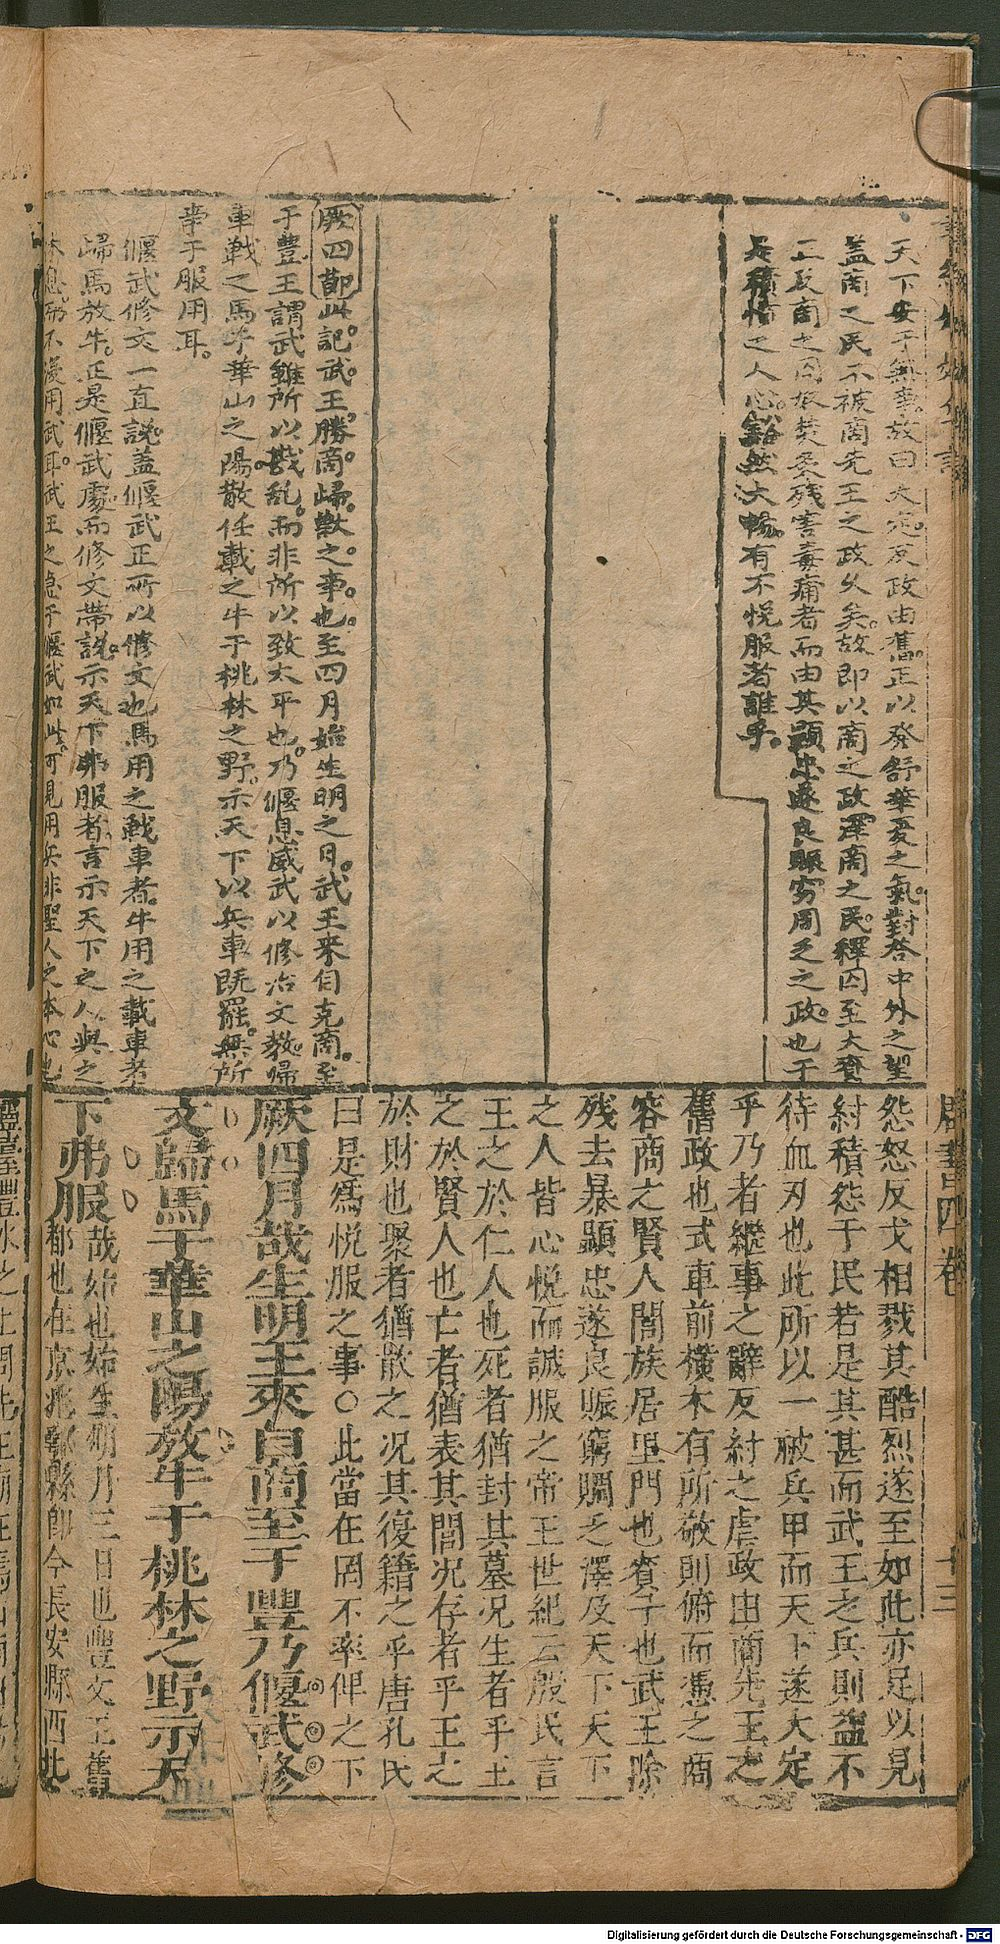 天下安于無事故曰大定反政由舊正以發舒華夏之氣對答中外之望
蓋商之民不被商先王之政久矣故即以商之政澤商之民釋囚至大賚
二反商之囚奴焚炙殘害毒痡者而由其顯忠遂良賑窮周乏之政也于
是積怨之人心豁然大暢有不悅服者誰乎
厥四節此記武王勝商歸獸之事也至四月始生明之日武王來自克商至
于豊王謂武雖所以戡乱而非所以致太平也乃偃息威武以修治文教歸
車戰之馬于華山之陽散任載之牛于桃林之野示天下以兵車既罷無所
事于服用耳
偃武修文一直說蓋偃武正所以修文也馬用之戰車者牛用之載車者
歸馬放牛正是偃武處而修文帶說示天下弗服者言示天下之人與之
休息而不復用武耳武王之急于偃武如此可見用兵非聖人之本心也
周書四卷
十三
怨怒反戈相戮其酷烈遂至如此亦足以見
紂積怨于民若是其甚而武王之兵則蓋不
待血刃也此所以一被兵甲而天下遂大定
乎乃者繼事之辭反紂之虐政由商先王之
舊政也式車前橫木有所敬則俯而憑之商
容商之賢人閭族居里門也賚予也武王除
殘去暴顯忠遂良賑窮賙乏澤及天下天下
之人皆心悅而誠服之帝王世紀云殷民言
王之於仁人也死者猶封其墓況生者乎王
之於賢人也亡者猶表其閭況存者乎王之
於財也聚者猶散之况其復籍之乎唐孔氏
曰是為悅服之事○此當在罔不率俾之下
厥四月哉生明王來自商至于豐乃偃武修
文歸馬于華山之陽放牛于桃林之野示天
下弗服
哉始也始生明月三日也豐文王舊
都也在京兆鄠縣即今長安縣西北
Digitalisierung gefördert durch die Deutsche Forschungsgemeinschaft - DFG